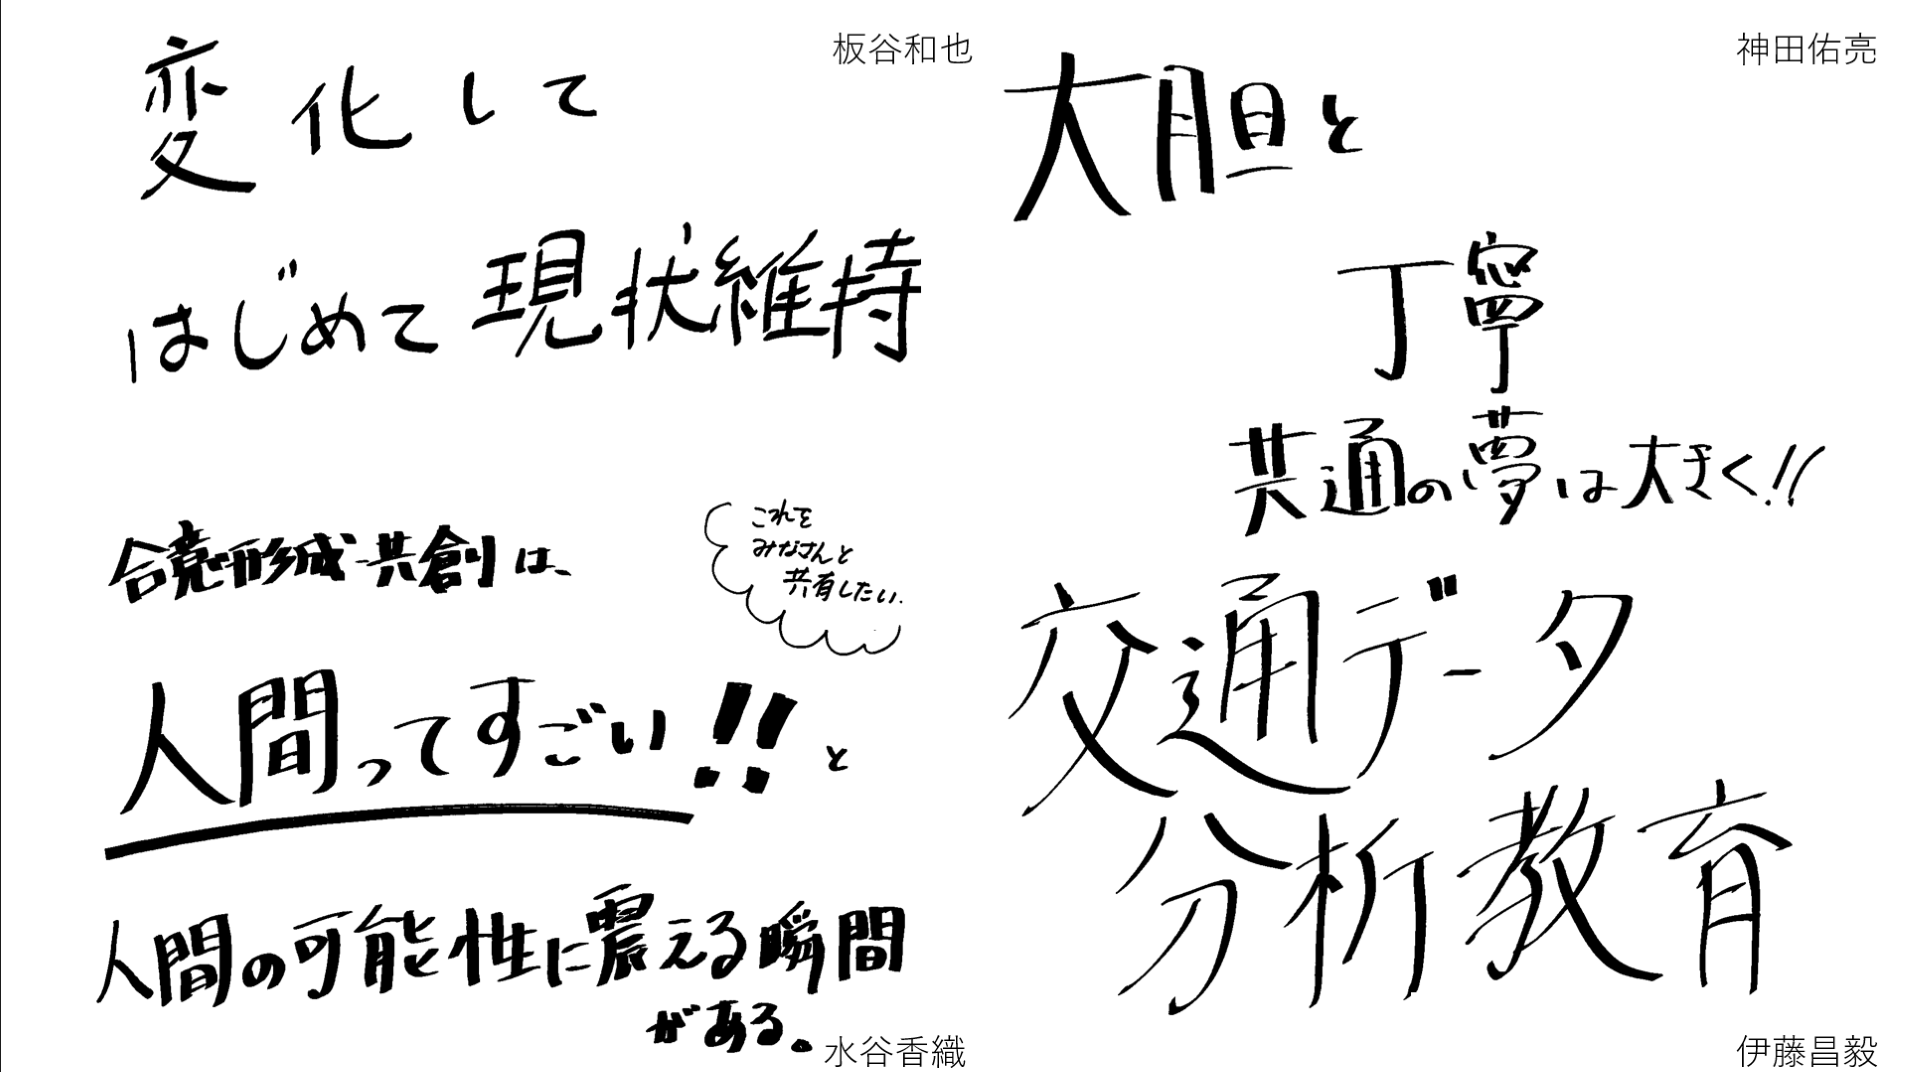 板谷和也
変化して
はじめて現状維持
神田佑亮
大胆と
丁寧
共通の夢は大きく!!
合意形成・共創は、
これを
みなさんと
共有したい.
人間ってすごい!!と
人間の可能性に震える瞬間
がある。
水谷香織
交通データ
分析教育
伊藤昌毅